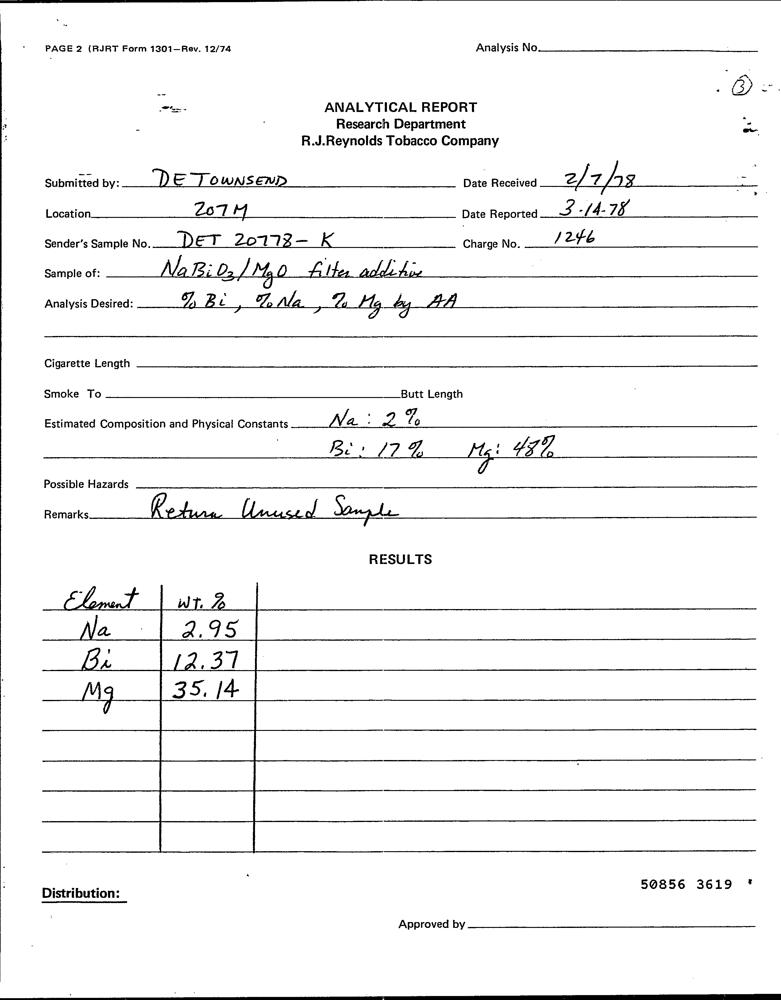 PAGE 2 (RJRT Form 1301—Rev. 12/74
Analysis No.
3
ANALYTICAL REPORT
Research Department
R.J.Reynolds Tobacco Company
Submitted by: DE TOWNSEND
Date Received 2/7/78
Location 207 M
Date Reported 3-14-78
Sender's Sample No. DET 20778-K
Charge No. 1246
Sample of: NaBiO3/MgO filter additive
Analysis Desired: % Bi, % Na, % Mg by AA
Cigarette Length
Smoke To Butt Length
Estimated Composition and Physical Constants Na: 2%
Bi: 17% Mg: 48%
Possible Hazards
Remarks Return Unused Sample
RESULTS
Element WT. %
Na 2.95
Bi 12.37
Mg 35.14
50856 3619
Distribution:
Approved by